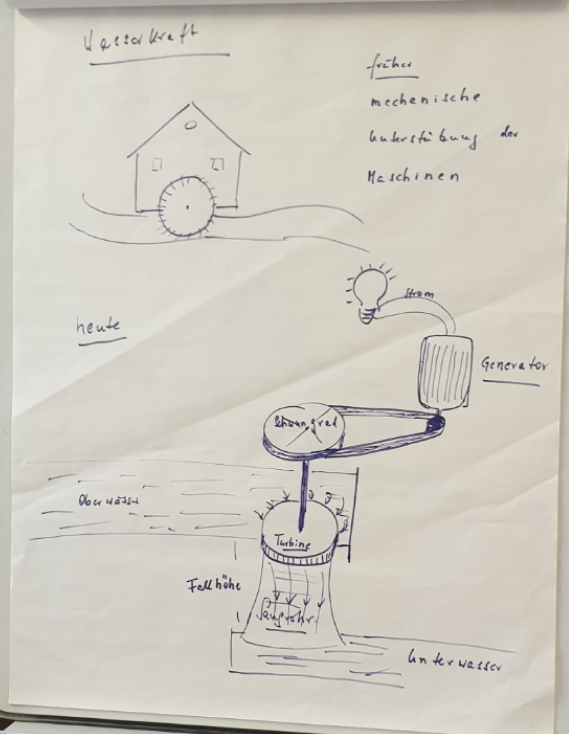 Wasserkraft
früher
mechanische
Unterstützung der
Maschinen
heute
Strom
Generator
Schwungrad
Oberwasser
Turbine
Fallhöhe
Saugrohr
Unterwasser